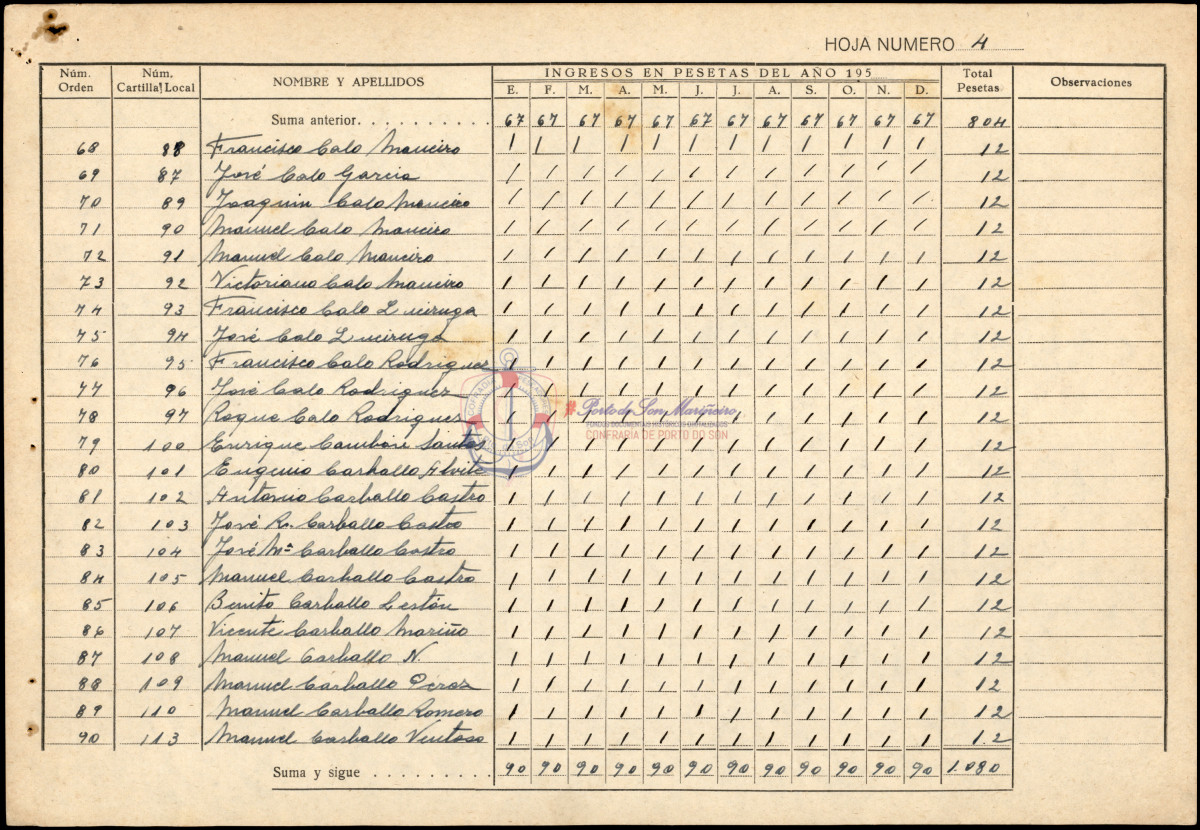 HOJA NUMERO 4
Núm. Orden Núm. Cartilla Local NOMBRE Y APELLIDOS INGRESOS EN PESETAS DEL AÑO 195 Total Pesetas Observaciones
E. F. M. A. M. J. J. A. S. O. N. D.
Suma anterior 67 67 67 67 67 67 67 67 67 67 67 67 804
68 88 Francisco Calo Maneiro 1 1 1 1 1 1 1 1 1 1 1 1 12
69 87 José Calo García 1 1 1 1 1 1 1 1 1 1 1 1 12
70 89 Joaquin Calo Maneiro 1 1 1 1 1 1 1 1 1 1 1 1 12
71 90 Manuel Calo Maneiro 1 1 1 1 1 1 1 1 1 1 1 1 12
72 91 Manuel Calo Maneiro 1 1 1 1 1 1 1 1 1 1 1 1 12
73 92 Victoriano Calo Maneiro 1 1 1 1 1 1 1 1 1 1 1 1 12
74 93 Francisco Calo 1 1 1 1 1 1 1 1 1 1 1 1 12
75 94 José Calo 1 1 1 1 1 1 1 1 1 1 1 1 12
76 95 Francisco Calo Rodriguez 1 1 1 1 1 1 1 1 1 1 1 1 12
77 96 José Calo Rodriguez 1 1 1 1 1 1 1 1 1 1 1 1 12
78 97 Roque Calo Rodriguez 1 1 1 1 1 1 1 1 1 1 1 1 12
79 100 Enrique Cambón Santos 1 1 1 1 1 1 1 1 1 1 1 1 12
80 101 Eugenio Carballo Alvite 1 1 1 1 1 1 1 1 1 1 1 1 12
81 102 Antonio Carballo Castro 1 1 1 1 1 1 1 1 1 1 1 1 12
82 103 José R. Carballo Castro 1 1 1 1 1 1 1 1 1 1 1 1 12
83 104 José Mª Carballo Castro 1 1 1 1 1 1 1 1 1 1 1 1 12
84 105 Manuel Carballo Castro 1 1 1 1 1 1 1 1 1 1 1 1 12
85 106 Benito Carballo Lestón 1 1 1 1 1 1 1 1 1 1 1 1 12
86 107 Vicente Carballo Mariño 1 1 1 1 1 1 1 1 1 1 1 1 12
87 108 Manuel Carballo N. 1 1 1 1 1 1 1 1 1 1 1 1 12
88 109 Manuel Carballo Pérez 1 1 1 1 1 1 1 1 1 1 1 1 12
89 110 Manuel Carballo Romero 1 1 1 1 1 1 1 1 1 1 1 1 12
90 113 Manuel Carballo Ventoso 1 1 1 1 1 1 1 1 1 1 1 1 12
Suma y sigue 90 90 90 90 90 90 90 90 90 90 90 90 1.080
# Porto do Son Mariñeiro
FONDOS DOCUMENTAIS HISTÓRICOS DIXITALIZADOS
CONFRARÍA DE PORTO DO SON